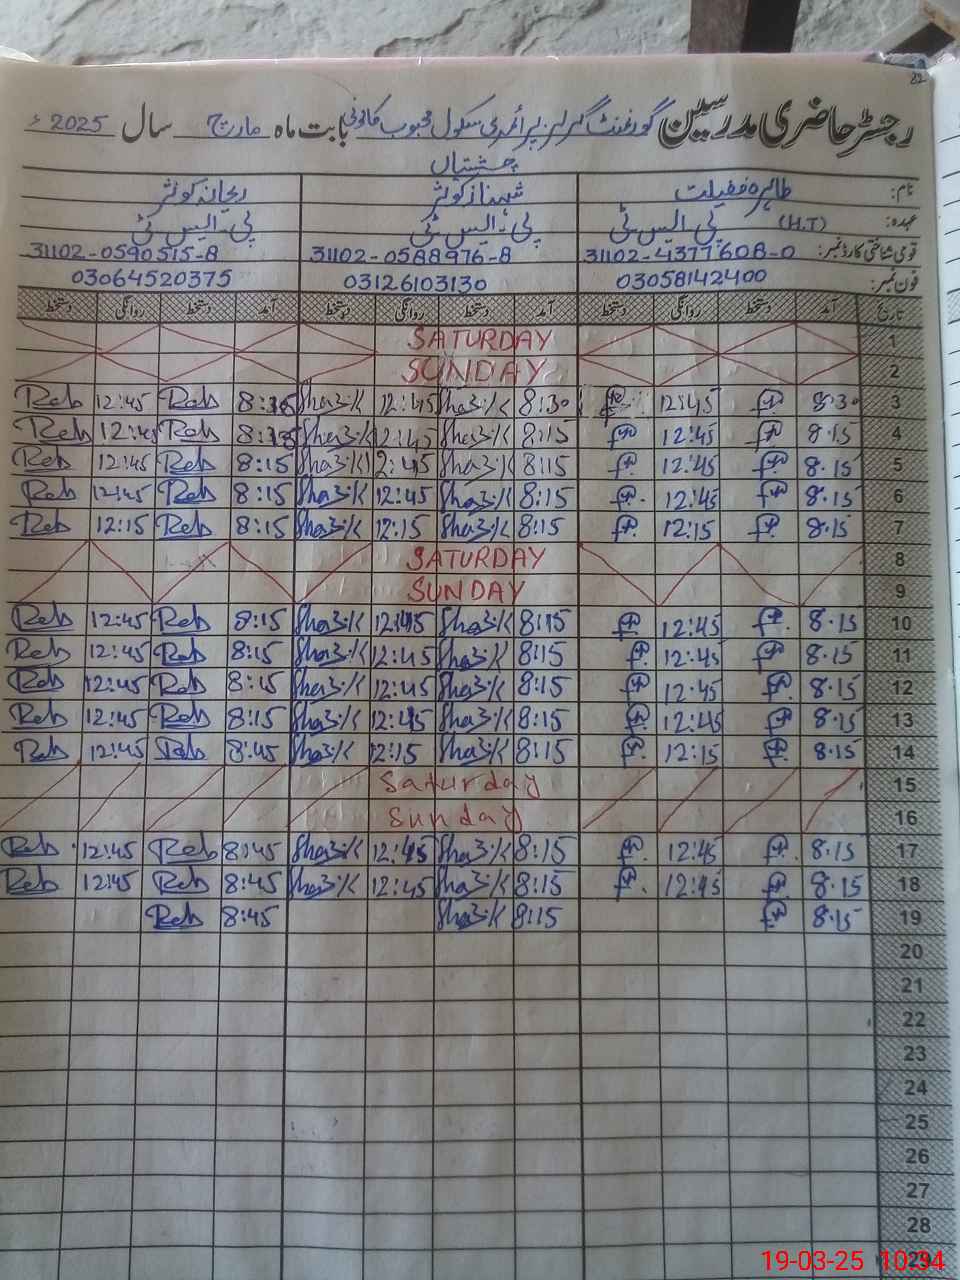 22
رجسٹر حاضری مدرسین گورنمنٹ گرلز پرائمری سکول محبوب کالونی بابت ماہ مارچ سال 2025ء
چشتیاں
نام: طاہرہ فضیلت شہناز کوثر ریحانہ کوثر
عہدہ: (H.T) پی ایس ٹی پی۔ایس ٹی پی۔ایس ٹی
قومی شناختی کارڈ نمبر: 31102-4377608-0 31102-0588976-8 31102-0590515-8
فون نمبر: 03058142400 03126103130 03064520375
تاریخ آمد دستخط روانگی دستخط آمد دستخط روانگی دستخط آمد دستخط روانگی دستخط
1 SATURDAY
2 SUNDAY
3 8.30 12:45 8:30 Sha3i/K 12:45 Sha3i/K Reh 12:45 Reh
4 8.15 12:45 8:15 Sha3i/K 12:45 Sha3i/K Reh 12:45 Reh
5 8.15 12:45 8:15 Sha3i/K 12:45 Sha3i/K 8:15 Reh 12:45 Reh
6 8.15 12:45 8:15 Sha3i/K 12:45 Sha3i/K 8:15 Reh 12:45 Reh
7 8.15 12:15 8:15 Sha3i/K 12:15 Sha3i/K 8:15 Reh 12:15 Reh
8 SATURDAY
9 SUNDAY
10 8.15 12:45 8:15 Sha3i/K 12:45 Sha3i/K 8:15 Reh 12:45 Reh
11 8.15 12:45 8:15 Sha3i/K 12:45 Sha3i/K 8:15 Reh 12:45 Reh
12 8.15 12:45 8:15 Sha3i/K 12:45 Sha3i/K 8:15 Reh 12:45 Reh
13 8.15 12:45 8:15 Sha3i/K 12:45 Sha3i/K 8:15 Reh 12:45 Reh
14 8.15 12:15 8:15 Sha3i/K 12:15 Sha3i/K 8:45 Reh 12:45 Reh
15 Saturday
16 Sunday
17 8.15 12:45 8:15 Sha3i/K 12:45 Sha3i/K 8:45 Reh 12:45 Reh
18 8.15 12:45 8:15 Sha3i/K 12:45 Sha3i/K 8:45 Reh 12:45 Reh
19 8.15 8:15 Sha3i/K 8:45 Reh
20
21
22
23
24
25
26
27
28
29
19-03-25 10:34